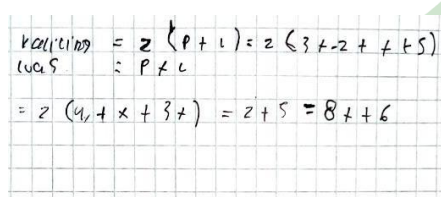 kaliling = 2 (P + L) = 2 (3x - 2 + x + 5)
luas = P x L
= 2 (4, + x + 3x) = 2 + 5 = 8x + 6